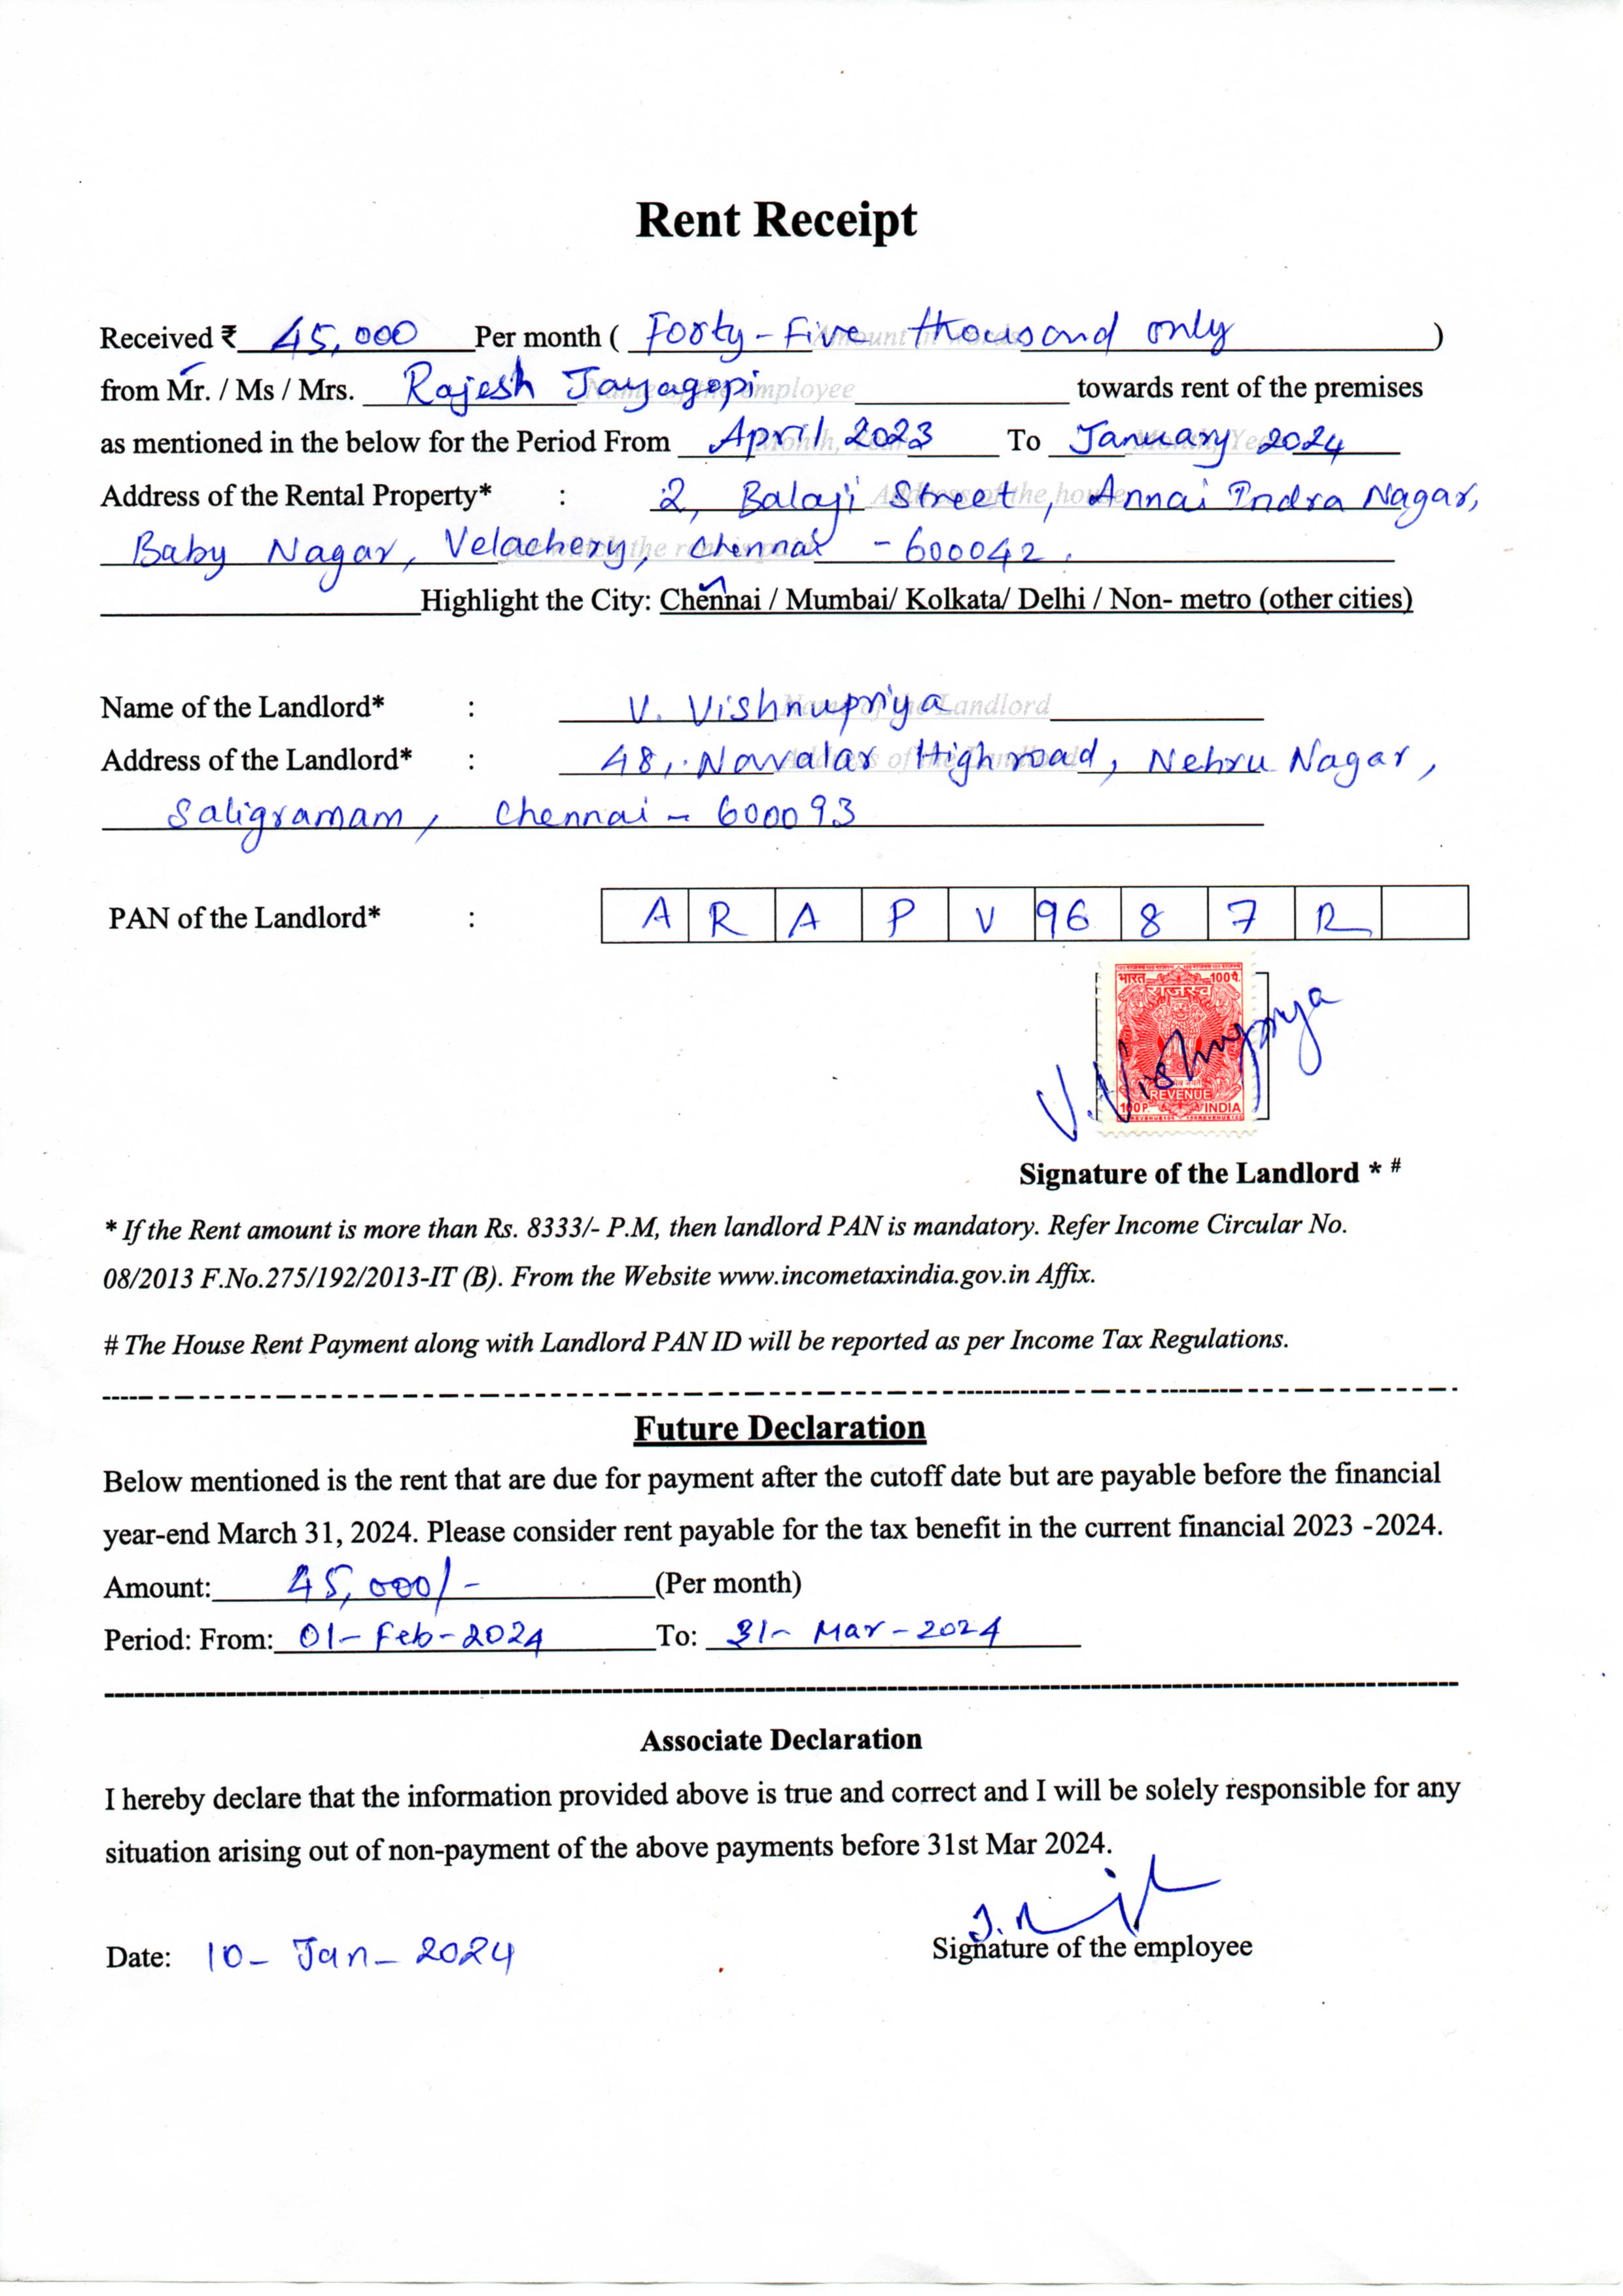 Rent Receipt
Received ₹ 45,000 Per month ( Forty-Five thousand only )
from Mr. / Ms / Mrs. Rajesh Jayagopi towards rent of the premises
as mentioned in the below for the Period From April 2023 To January 2024
Address of the Rental Property* : 2, Balaji Street, Annai Indra Nagar,
Baby Nagar, Velachery, Chennai - 600042.
Highlight the City: Chennai / Mumbai/ Kolkata/ Delhi / Non- metro (other cities)
Name of the Landlord* : V. Vishnupriya
Address of the Landlord* : 48, Navalar High road, Nehru Nagar,
Saligramam, Chennai - 600093
PAN of the Landlord* : A R A P V 96 8 7 R
भारत 100 पै.
राजस्व
V. Vishnupriya
REVENUE
100 P. INDIA
Signature of the Landlord * #
* If the Rent amount is more than Rs. 8333/- P.M, then landlord PAN is mandatory. Refer Income Circular No.
08/2013 F.No.275/192/2013-IT (B). From the Website www.incometaxindia.gov.in Affix.
# The House Rent Payment along with Landlord PAN ID will be reported as per Income Tax Regulations.
Future Declaration
Below mentioned is the rent that are due for payment after the cutoff date but are payable before the financial
year-end March 31, 2024. Please consider rent payable for the tax benefit in the current financial 2023 -2024.
Amount: 45,000/- (Per month)
Period: From: 01-Feb-2024 To: 31-Mar-2024
Associate Declaration
I hereby declare that the information provided above is true and correct and I will be solely responsible for any
situation arising out of non-payment of the above payments before 31st Mar 2024.
Date: 10-Jan-2024
Signature of the employee